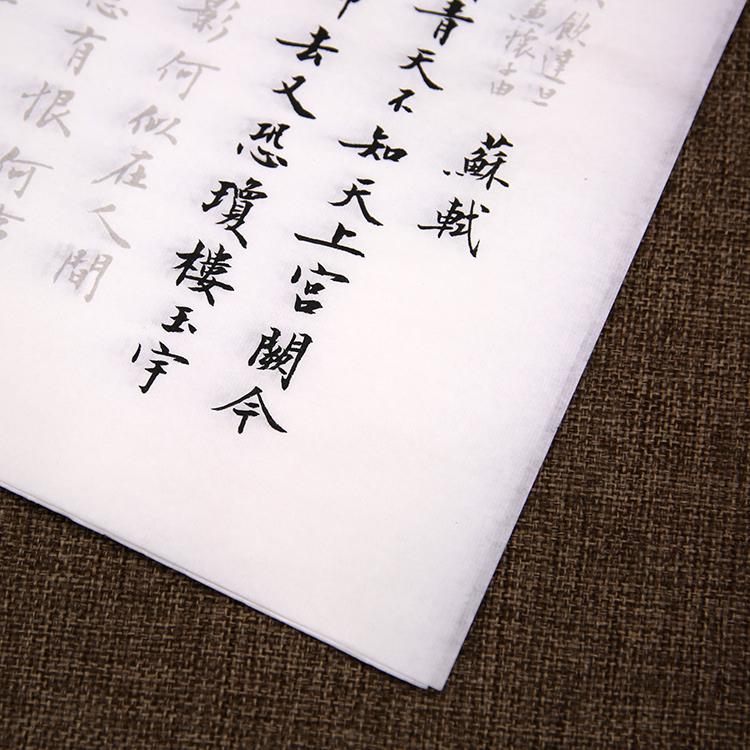 飲達旦
兼懷子由
蘇軾
青天不知天上宮闕今
去又恐瓊樓玉宇
影何似在人間
有恨何